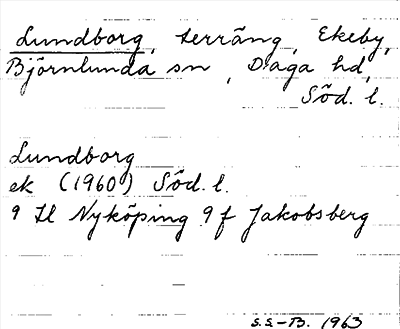 Lundborg, terräng, Ekeby,
Björnlunda sn, Daga hd,
Söd. l.
Lundborg
ek (1960) Söd. l.
9 H Nyköping 9 f Jakobsberg
S.S.-B. 1963